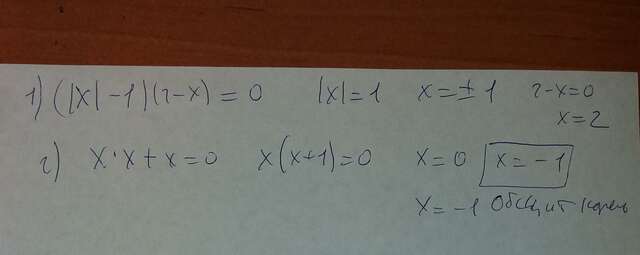 1) (|x| -1)(2-x) = 0 |x| = 1 x = ± 1 2-x=0
x=2
2) x·x+x=0 x(x+1)=0 x=0 x=-1
x=-1 общий корень